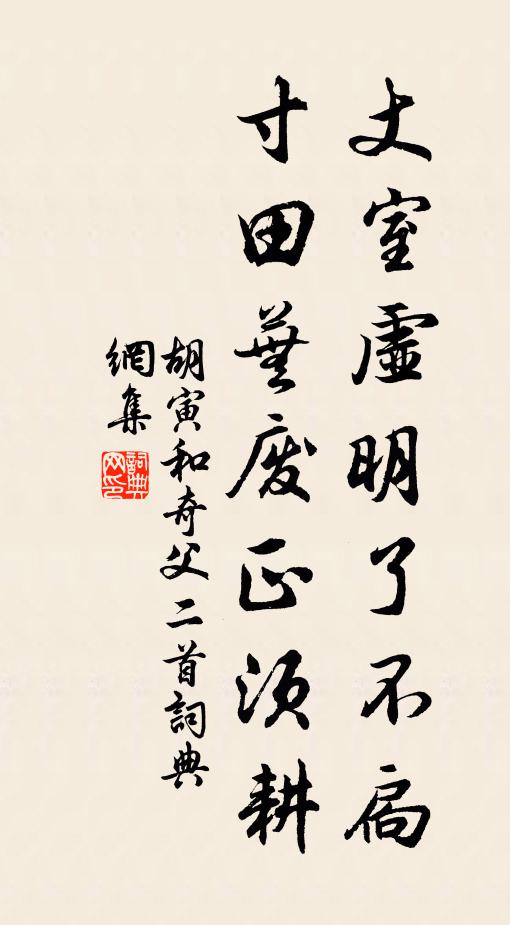 丈室虛明了不扃
寸田蕪廢正須耕
胡寅和奇父二首詞典
網集
詞典網印